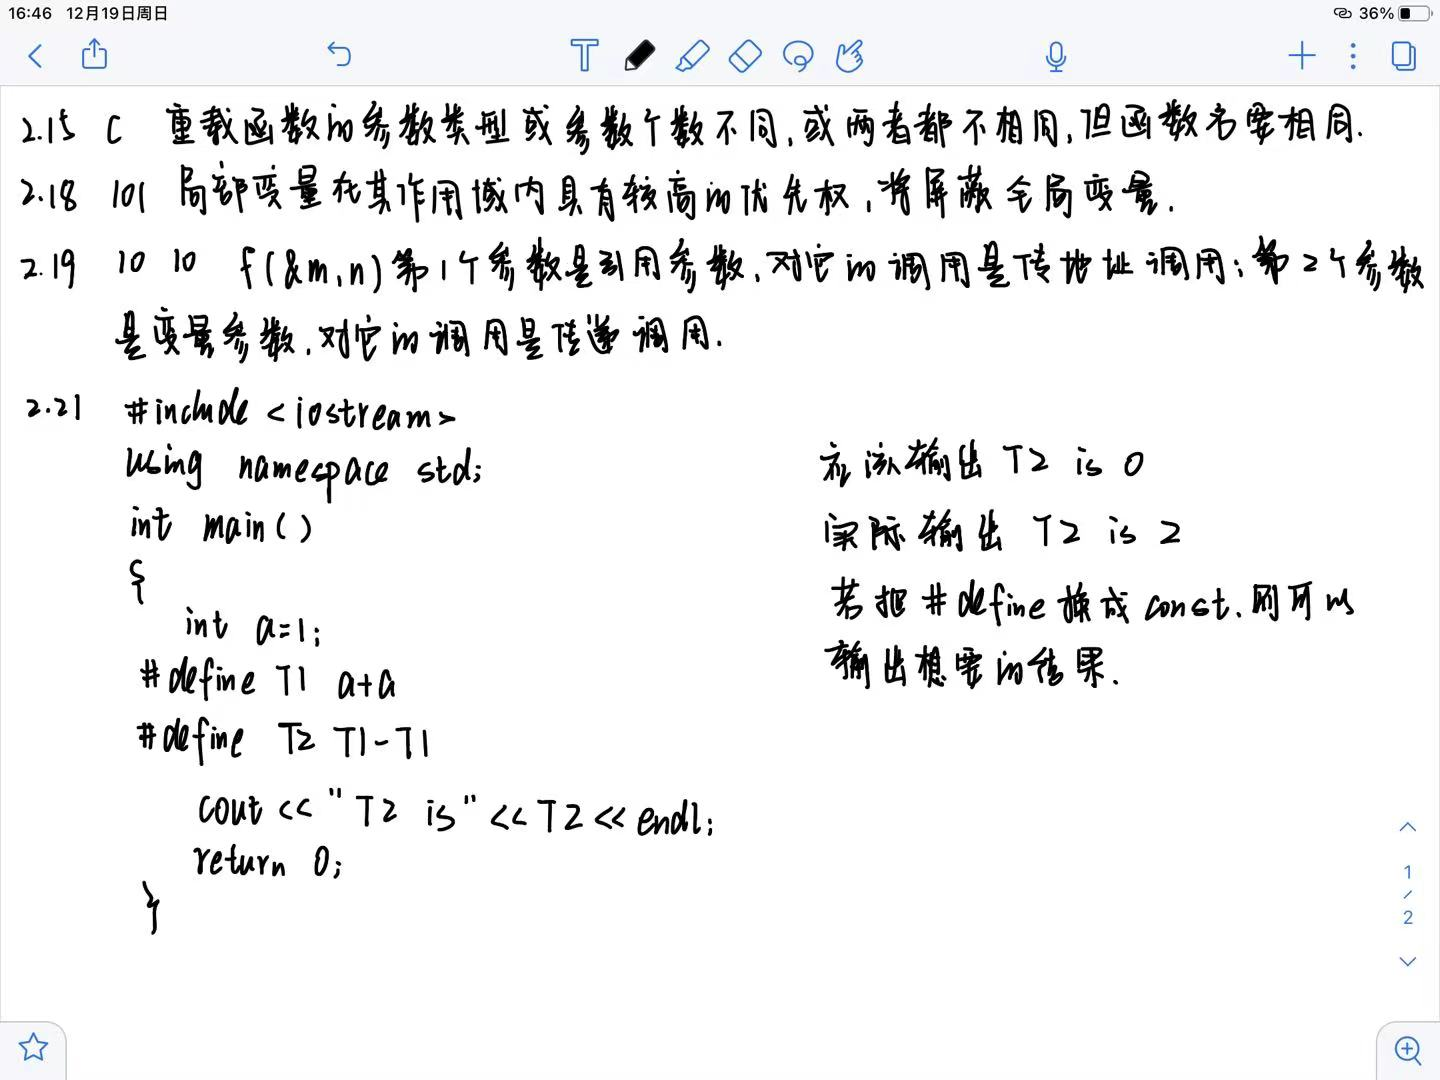 16:46 12月19日周日
36%
2.15 C 重载函数的参数类型或参数个数不同,或两者都不相同,但函数名要相同.
2.18 101 局部变量在其作用域内具有较高的优先权,将屏蔽全局变量.
2.19 10 10 f(&m,n)第1个参数是引用参数,对它的调用是传地址调用;第2个参数
是变量参数,对它的调用是传递调用.
2.21 #include <iostream>
using namespace std;
int main()
{
int a=1;
#define T1 a+a
#define T2 T1-T1
cout << "T2 is" << T2 << endl;
return 0;
}
应该输出 T2 is 0
实际输出 T2 is 2
若把 #define 换成 const.则可以
输出想要的结果.
1
/
2